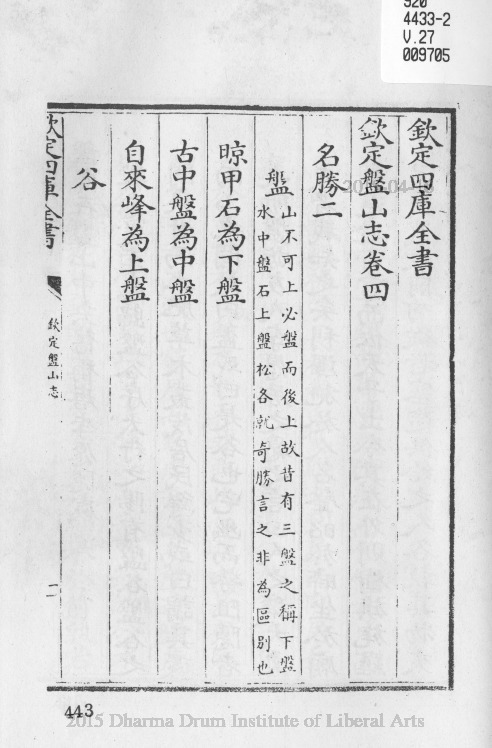 920
4433-2
V.27
009705
欽定四庫全書
欽定盤山志卷四
名勝二
盤 山不可上必盤而後上故昔有三盤之稱下盤
水中盤石上盤松各就奇勝言之非為區別也
晾甲石為下盤
古中盤為中盤
自來峰為上盤
谷
欽定四庫全書
欽定盤山志
443
2015 Dharma Drum Institute of Liberal Arts